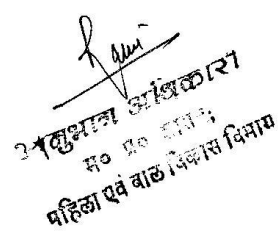 Ravi
अनुभाग अधिकारी
म० प्र० शासन
महिला एवं बाल विकास विभाग